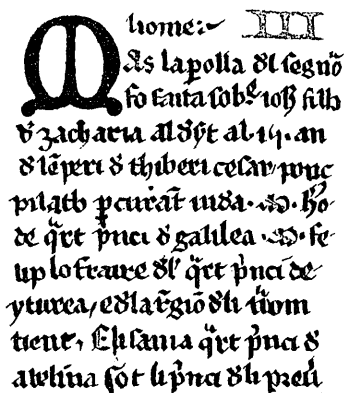 home: III
Mas la polla dl segnō
fo faita sobe ioħ filh
d zacharia al dst al .15. an
d lēperi d thiberi cesar ponc
pilath pcurāt iuda . ⁊ . ħo
de qrt pnci d galilea . ⁊ . fe
lip lo fraire dl qrt pnci de
yturea / e d la rgio d li
tient, Elisania qrt pnci d
abelina sot li pnci d li preu